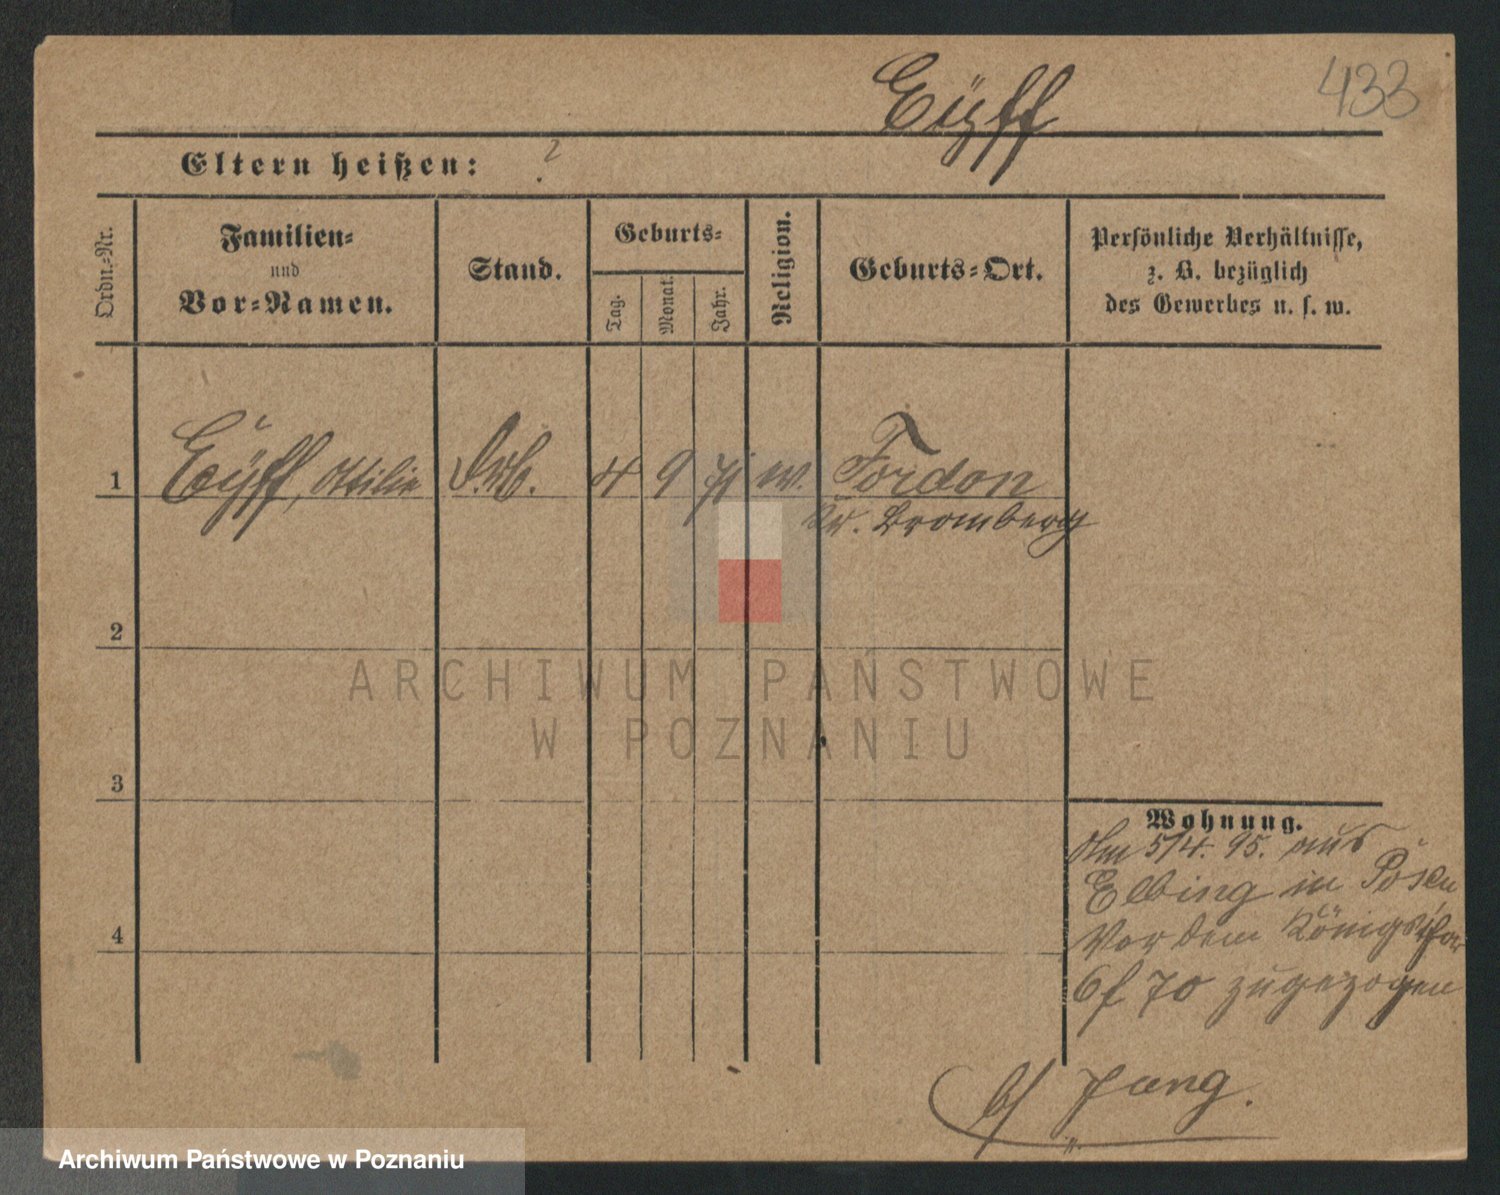 433
Eÿff
Eltern heißen: ?
Ordn.-Nr.
Familien-
und
Vor-Namen.
Stand.
Geburts-
Tag.
Monat.
Jahr.
Religion.
Geburts-Ort.
Persönliche Verhältnisse,
z. B. bezüglich
des Gewerbes u. s. w.
1 Eÿff, Ottilie 4 9 71 Fordon
Kr. Bromberg
2
3
4
Wohnung.
Am 5/4. 95. aus
Elbing in Posen
Vor dem Königsthor
70 zugezogen
b/ Jang.
ARCHIWUM PAŃSTWOWE
W POZNANIU
Archiwum Państwowe w Poznaniu